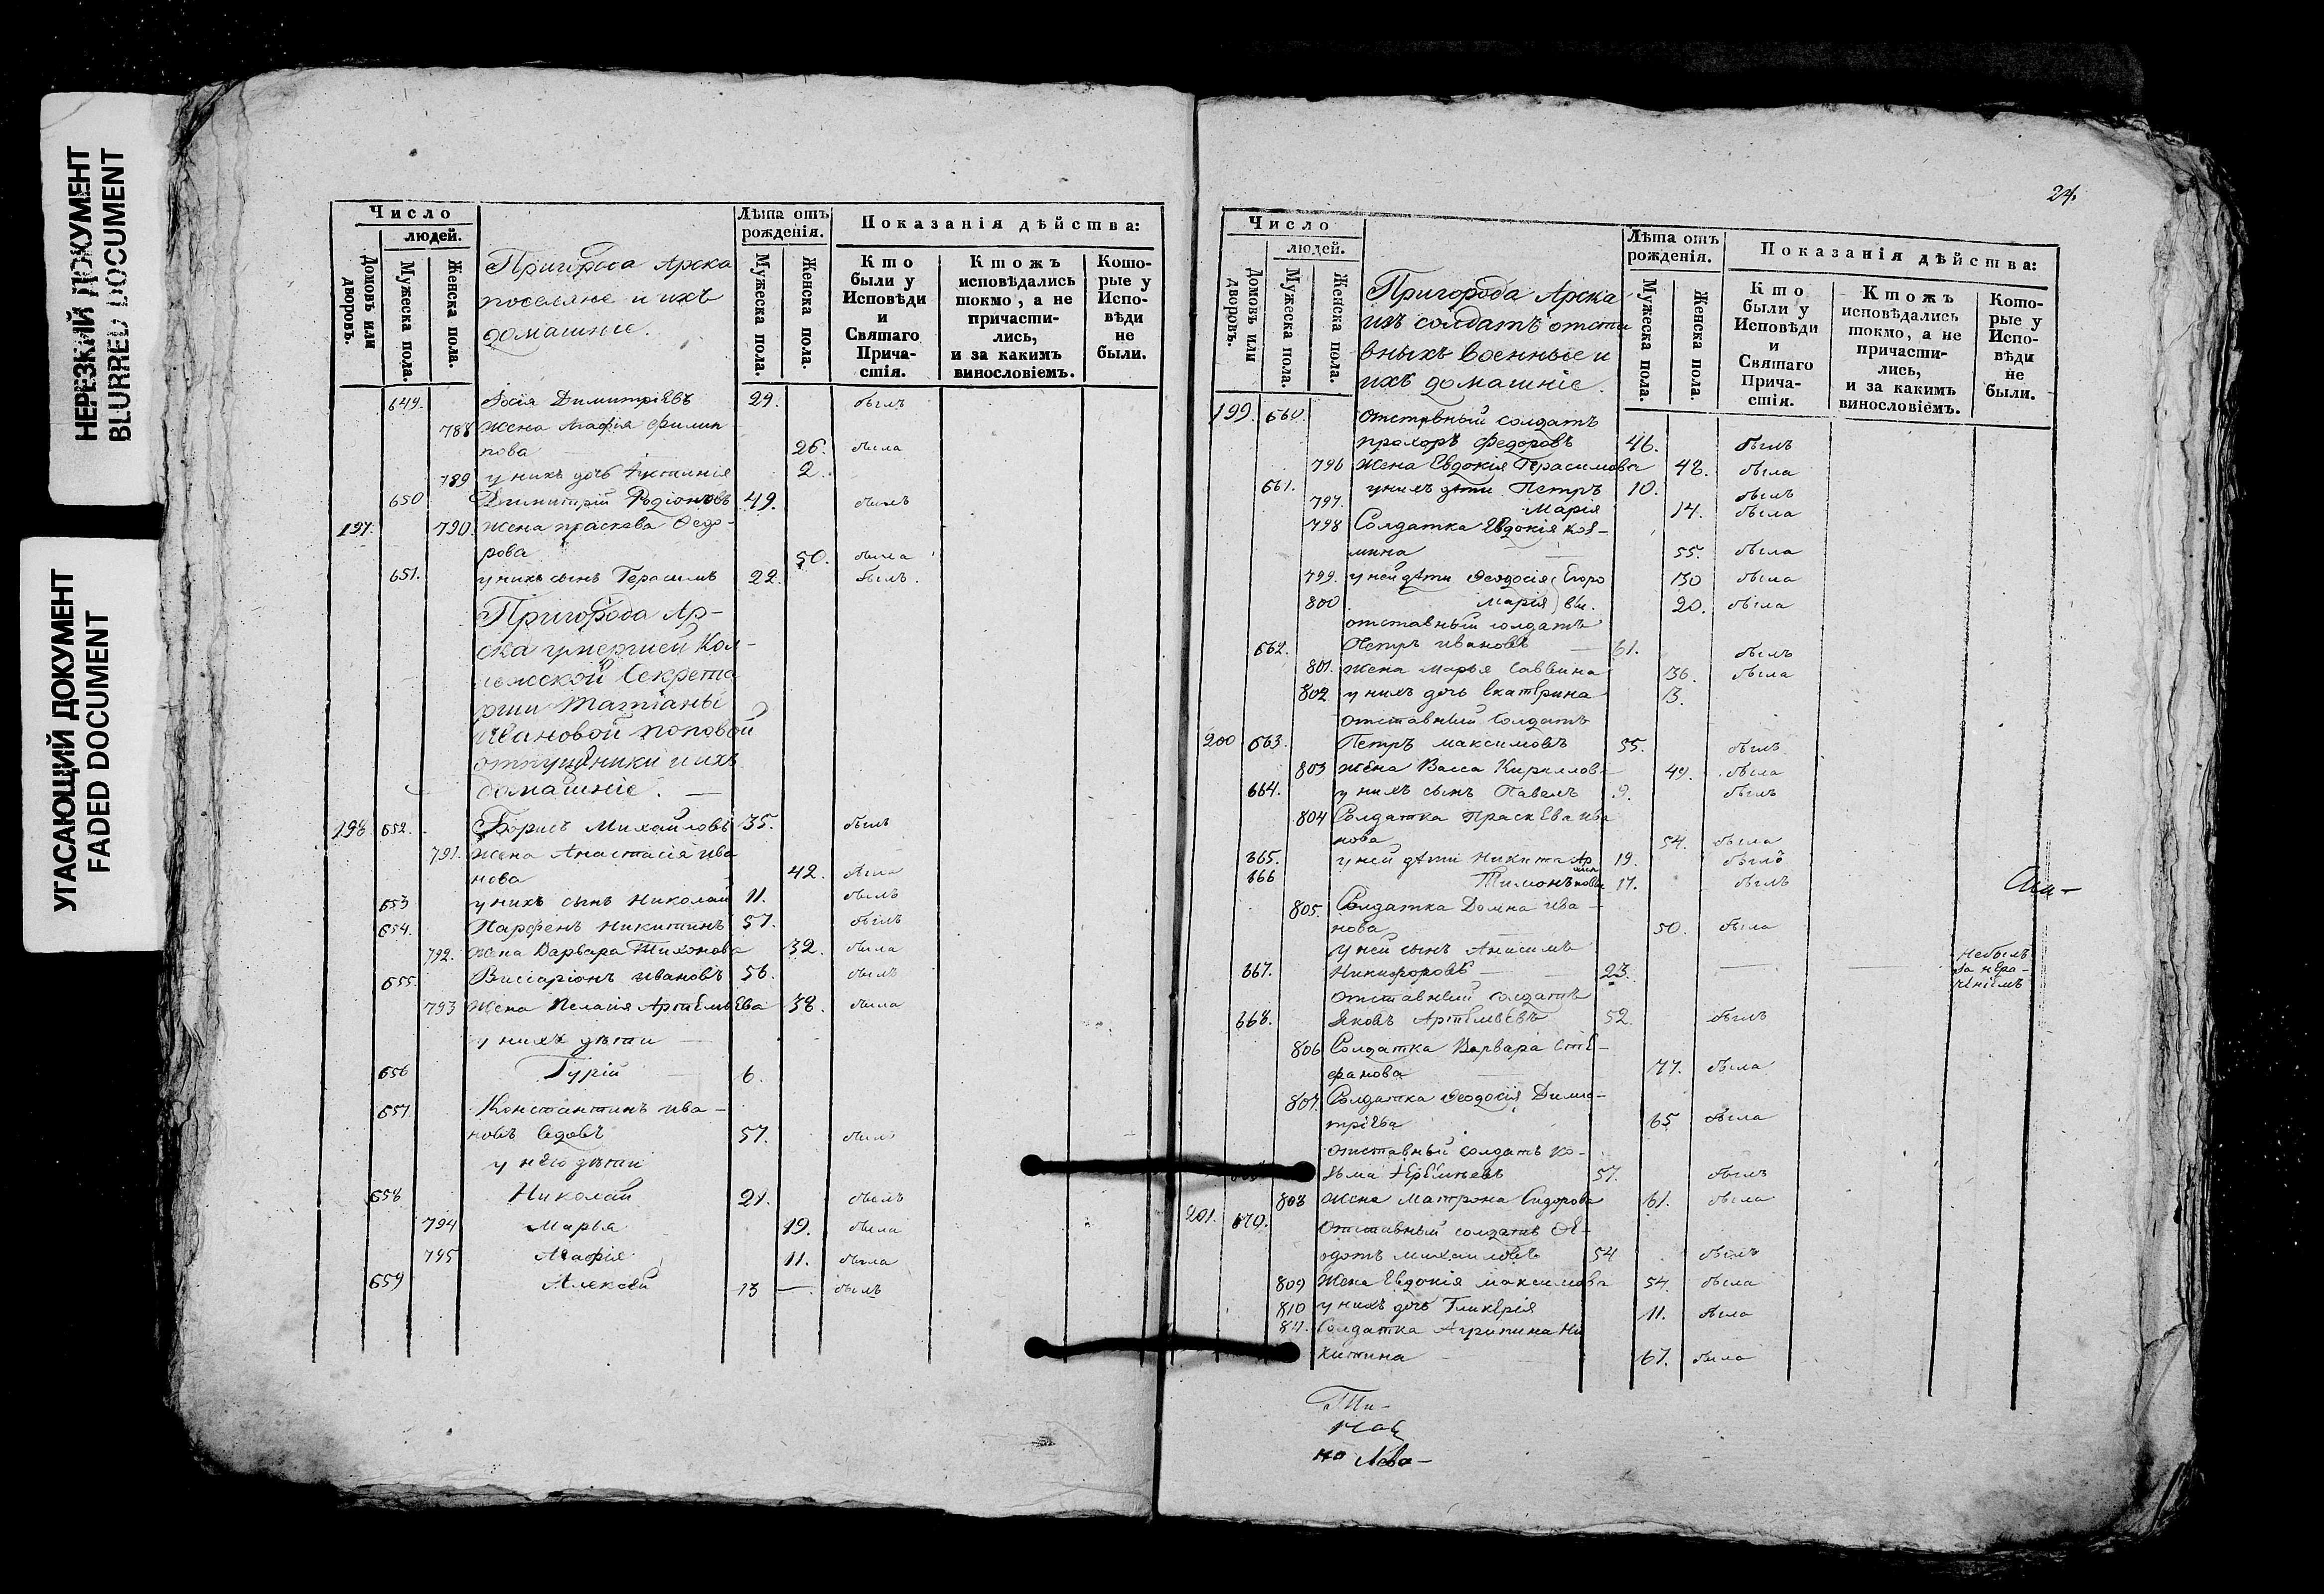 НЕРЕЗКИЙ ДОКУМЕНТ
BLURRED DOCUMENT
УГАСАЮЩИЙ ДОКУМЕНТ
FADED DOCUMENT
Число
людей.
Домовъ или дворовъ.
Мужеска пола.
Женска пола.
Пригорода Арска
поселяне и ихъ
домашніе.
Лѣта отъ рожденія.
Мужеска пола.
Женска пола.
Показанія дѣйства:
Кто были у Исповѣди и Святаго Причастія.
Ктожъ исповѣдались токмо, а не причастились, и за какимъ винословіемъ.
Которые у Исповѣди не были.
649. Димитріевъ 29. былъ
788 Жена Агафія Филип
пова 26. была
789 у нихъ дочь 2.
650 Димитрій Родіоновъ 49. былъ
197. 790. Жена Праскева Ѳедо-
рова 50. была
651. у нихъ сынъ Герасимъ 22. былъ.
Пригорода Ар-
ска умершей Кол-
лежской Секрета
рши Татіаны
Ивановой Поповой
отпущенники и ихъ
домашніе. —
198. 652. Борисъ Михайловъ 35. былъ
791. Жена Анастасія Ива
нова 42. была
653 у нихъ сынъ Николай 11. былъ
654. Парфенъ Никитинъ 57. былъ
792. Жена Варвара Тихонова 32. была
655. Виссаріонъ Ивановъ 56. былъ
793 Жена Пелагія Артемьева 38. была
у нихъ дѣти —
656 Гурій — 6.
657 Константинъ Ива-
новъ вдовъ 57. былъ
у него дѣти
658 Николай 21. былъ
794 Марья 19. была
795 Агафія 11. была
659 Алексѣй 13 — былъ
24.
Число
людей.
Домовъ или дворовъ.
Мужеска пола.
Женска пола.
Пригорода Арска
изъ солдатъ отста
вныхъ военные и
ихъ домашніе.
Лѣта отъ рожденія.
Мужеска пола.
Женска пола.
Показанія дѣйства:
Кто были у Исповѣди и Святаго Причастія.
Ктожъ исповѣдались токмо, а не причастились, и за какимъ винословіемъ.
Которые у Исповѣди не были.
199. 660. Отставный солдатъ
Прохоръ Федоровъ 46. былъ
796 Жена Евдокія Герасимова 48. была
661. у нихъ дѣти Петръ 10. былъ
797. Марія 14. была
798 Солдатка Евдокія Коз-
мина — 55. была
799. у ней дѣти Ѳеодосія Егоро 30 была
800 Марія вы. 20. была
отставный солдатъ
662. Петръ Ивановъ — 61. былъ
801. Жена Марья Саввина 36. была
802 у нихъ дочь Екатерина 13.
отставный солдатъ
200 663. Петръ Максимовъ 55. былъ
803 Жена Васса Кирилова 49. была
664. у нихъ сынъ Павелъ 9. былъ
804 Солдатка Праскева Ива
нова 54. была
665. у ней дѣти Никита 19. былъ
666 Тимонъ 17. былъ
805. Солдатка Домна Ива-
нова 50. была
у ней сынъ Анисимъ
667. Никифоровъ — 23. — небылъ
за нера-
ченіемъ
отставный солдатъ
668. Яковъ Артемьевъ 52. былъ
806 Солдатка Варвара Сте-
фанова 77. была
807. Солдатка Ѳеодосія Дими-
тріева 65 была
отставный солдатъ Ко-
зьма 57. былъ
808 Жена Матрона Сидорова 61. была
201. 670. Отставный солдатъ Ѳе-
одотъ Михаиловъ 54 былъ
809 Жена Евдокія Максимова 54. была
810 у нихъ дочь Гликерія 11. была
811. Солдатка Агрипина Ни
китина — 67. была